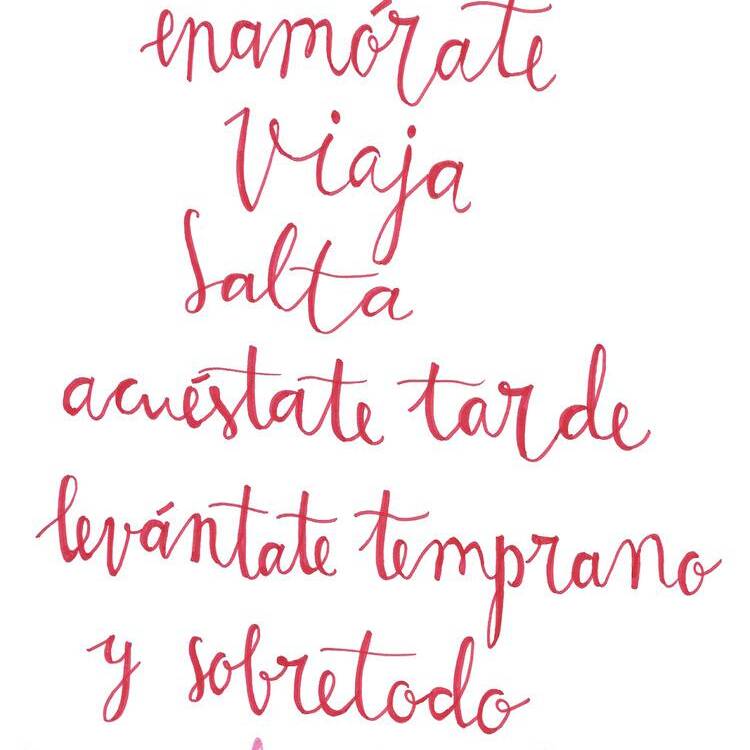 enamórate
Viaja
Salta
acuéstate tarde
levántate temprano
y sobretodo